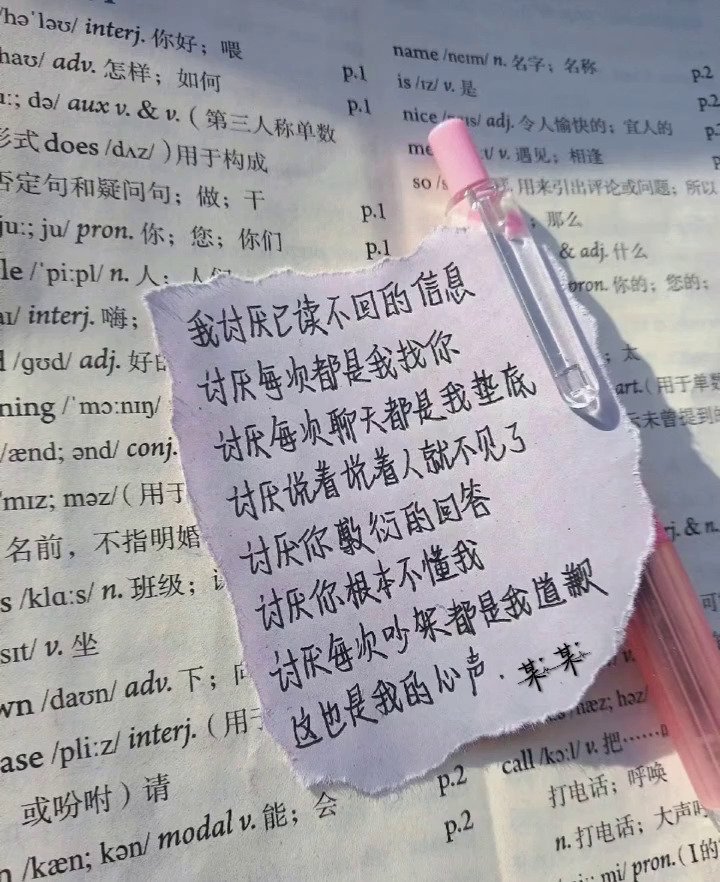 /hə'ləʊ/ interj. 你好；喂
haʊ/ adv. 怎样；如何 p.1
uː; də/ aux v. & v.（第三人称单数 p.1
形式 does /dʌz/）用于构成
否定句和疑问句；做；干
juː; ju/ pron. 你；您；你们 p.1
le /'piːpl/ n. 人； p.1
aɪ/ interj. 嗨；
/ɡʊd/ adj. 好的
ning /'mɔːnɪŋ/
/ænd; ənd/ conj.
'mɪz; məz/（用于
名前，不指明婚
s /klɑːs/ n. 班级；
sɪt/ v. 坐
wn /daʊn/ adv. 下；向
ase /pliːz/ interj.（用于
或吩咐）请
n /kæn; kən/ modal v. 能；会 p.2
p.2
name /neɪm/ n. 名字；名称
is /ɪz/ v. 是 p.2
nice adj. 令人愉快的；宜人的 p.2
v. 遇见；相逢
so 用来引出评论或问题；所以
；那么
& adj. 什么
pron. 你的；您的；
；太
art.（用于单
未曾提到的
我讨厌已读不回的信息
讨厌每次都是我找你
讨厌每次聊天都是我垫底
讨厌说着说着人就不见了
讨厌你敷衍的回答
讨厌你根本不懂我
讨厌每次吵架都是我道歉
这也是我的心声.某某
j. & n.
v.
hæz; həz/
call /kɔːl/ v. 把……叫
打电话；呼唤
n. 打电话；大声
mi/ pron.（I 的